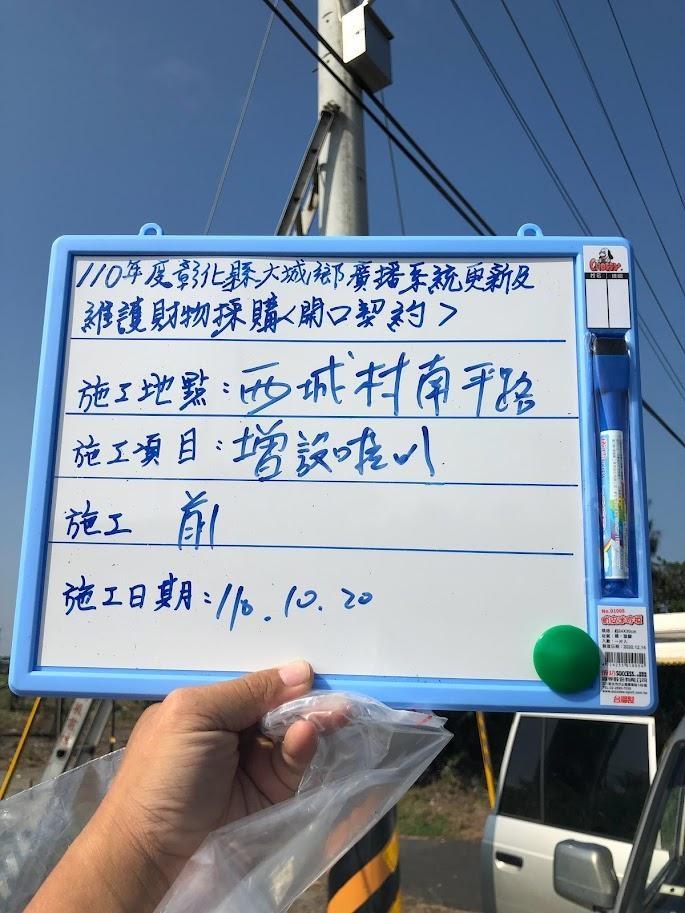 110年度彰化縣大城鄉廣播系統更新及
維護財物採購<開口契約>
施工地點:西城村南平路
施工項目:增設喇叭
施工 前
施工日期:110.10.20
No.01005
SUCCESS
台灣製